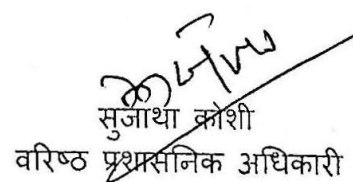 सुजाथा कोशी
वरिष्ठ प्रशासनिक अधिकारी